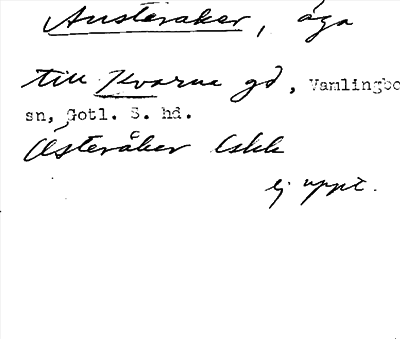 Austeraker, äga
till Kvarne gd, Vamlingbo
sn, Gotl. S. hd.
Österåker Eskk
ej uppt.